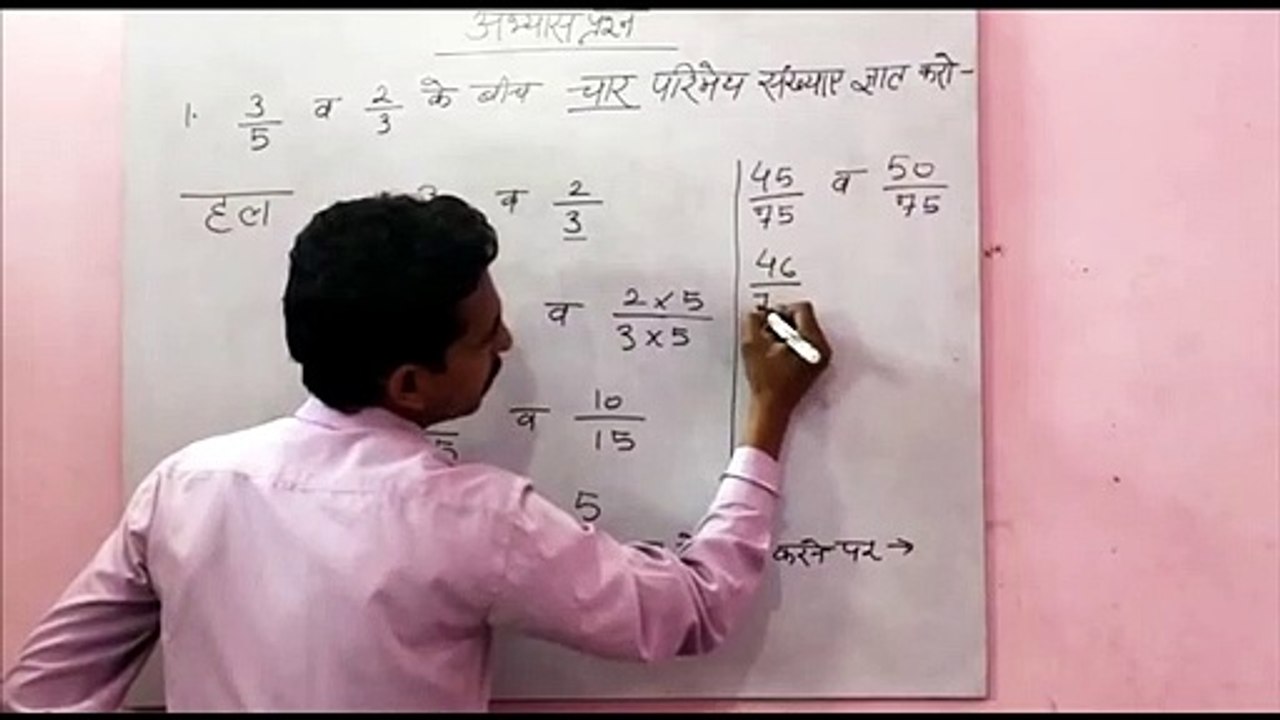 अभ्यास प्रश्न
1. 3/5 व 2/3 के बीच चार परिमेय संख्याए ज्ञात करो-
हल
व 2/3
व 2×5/3×5
व 10/15
5
करने पर →
45/75 व 50/75
46